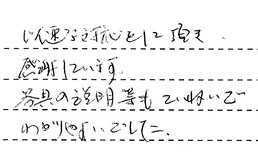 じん速な対応をして頂き
感謝しています。
器具の説明等もていねいで
わかりやすいでした。